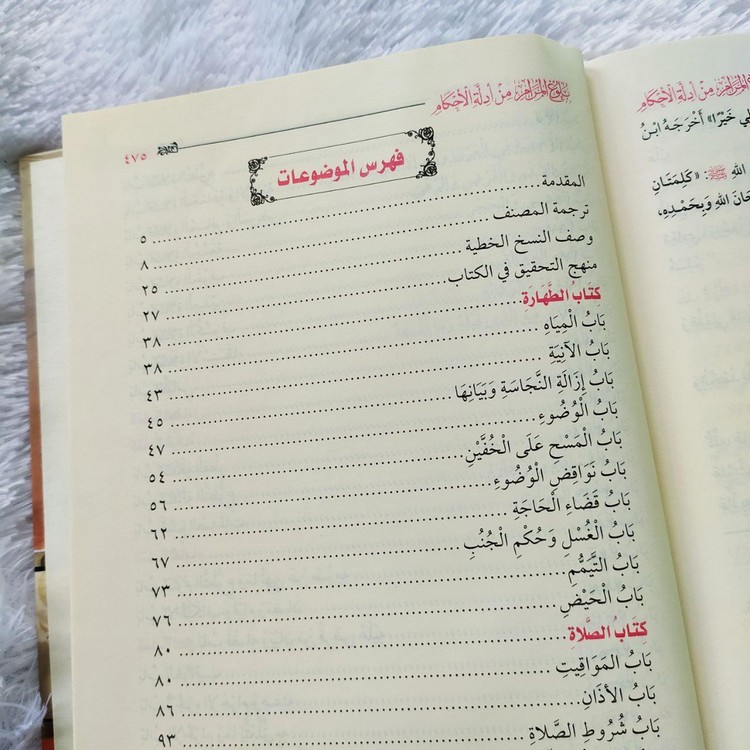 بلوغ المرام من أدلة الأحكام
٤٧٥
فهرس الموضوعات
المقدمة ٥
ترجمة المصنف ٨
وصف النسخ الخطية ٢٥
منهج التحقيق في الكتاب ٢٧
كِتَابُ الطَّهَارَةِ ٣٨
بَابُ الْمِيَاهِ ٣٨
بَابُ الآنِيَةِ ٤٣
بَابُ إِزَالَةِ النَّجَاسَةِ وَبَيَانِهَا ٤٥
بَابُ الْوُضُوءِ ٤٧
بَابُ الْمَسْحِ عَلَى الْخُفَّيْنِ ٥٤
بَابُ نَوَاقِضِ الْوُضُوءِ ٥٦
بَابُ قَضَاءِ الْحَاجَةِ ٦٢
بَابُ الْغُسْلِ وَحُكْمِ الْجُنُبِ ٦٧
بَابُ التَّيَمُّمِ ٧٣
بَابُ الْحَيْضِ ٧٦
كِتَابُ الصَّلاةِ ٨٠
بَابُ المَوَاقِيتِ ٨٠
بَابُ الأَذَانِ ٨٦
بَابُ شُرُوطِ الصَّلاةِ ٩٣
المرام من أدلة الأحكام
خَيْرًا» أَخْرَجَهُ ابْنُ
اللهِ ﷺ: «كَلِمَتَانِ
اللهِ وَبِحَمْدِهِ،